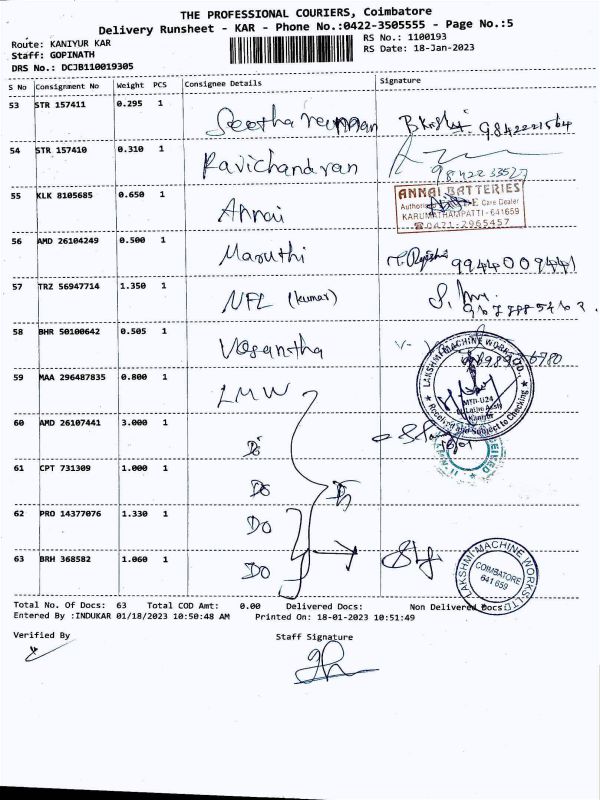 THE PROFESSIONAL COURIERS, Coimbatore
Delivery Runsheet - KAR - Phone No.:0422-3505555 - Page No.:5
Route: KANIYUR KAR
RS No.: 1100193
Staff: GOPINATH
RS Date: 18-Jan-2023
DRS No.: DCJB110019305
S No Consignment No Weight PCS Consignee Details Signature
53 STR 157411 0.295 1
54 STR 157410 0.310 1 Ravichandran
55 KLK 8105685 0.650 1 Annai
ANNAI BATTERIES
Care Dealer
KARUMATHAMPATTI - 641659
☎0421-2965457
56 AMD 26104249 0.500 1 Maruthi 9944009441
57 TRZ 56947714 1.350 1 NFL (kumar)
58 BHR 50100642 0.505 1 Vasantha
59 MAA 296487835 0.800 1 LMW
LAKSHMI MACHINE WORKS LTD.,
Received and Subject to Checking
60 AMD 26107441 3.000 1 Do
61 CPT 731309 1.000 1 Do
62 PRO 14377076 1.330 1 Do
63 BRH 368582 1.060 1 Do
LAKSHMI MACHINE WORKS LTD
COIMBATORE
641 659
Total No. Of Docs: 63 Total COD Amt: 0.00 Delivered Docs: Non Delivered Docs:
Entered By :INDUKAR 01/18/2023 10:50:48 AM Printed On: 18-01-2023 10:51:49
Verified By Staff Signature